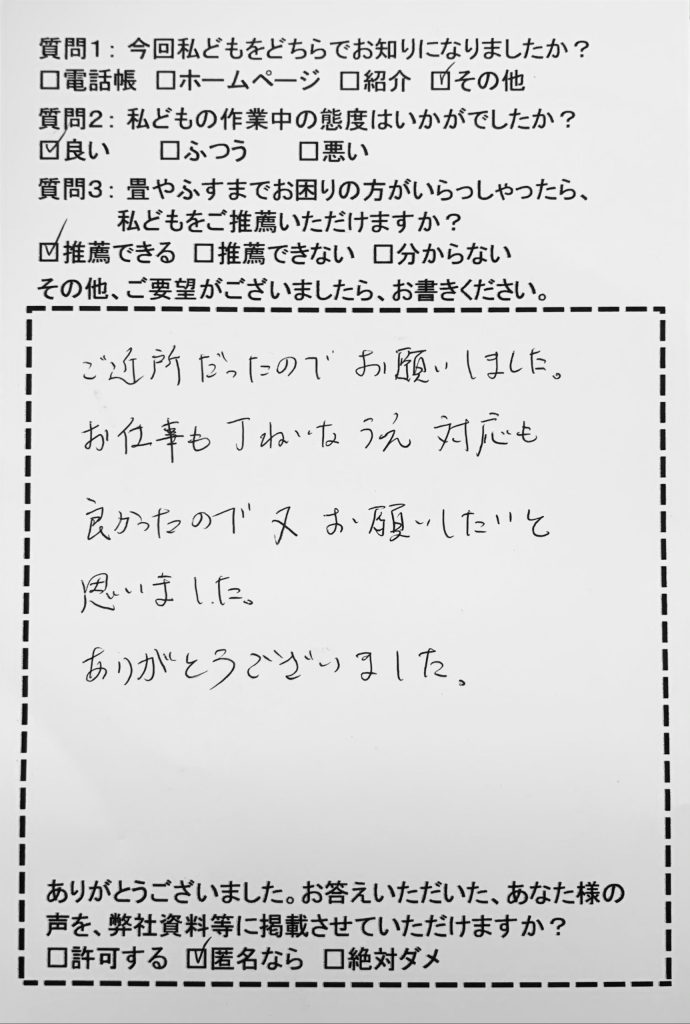 質問1：今回私どもをどちらでお知りになりましたか？
□電話帳 □ホームページ □紹介 ☑その他
質問2：私どもの作業中の態度はいかがでしたか？
☑良い □ふつう □悪い
質問3：畳やふすまでお困りの方がいらっしゃったら、
私どもをご推薦いただけますか？
☑推薦できる □推薦できない □分からない
その他、ご要望がございましたら、お書きください。
ご近所だったので お願いしました。
お仕事も丁ねいなうえ 対応も
良かったので 又 お願いしたいと
思いました。
ありがとうございました。
ありがとうございました。お答えいただいた、あなた様の
声を、弊社資料等に掲載させていただけますか？
□許可する ☑匿名なら □絶対ダメ